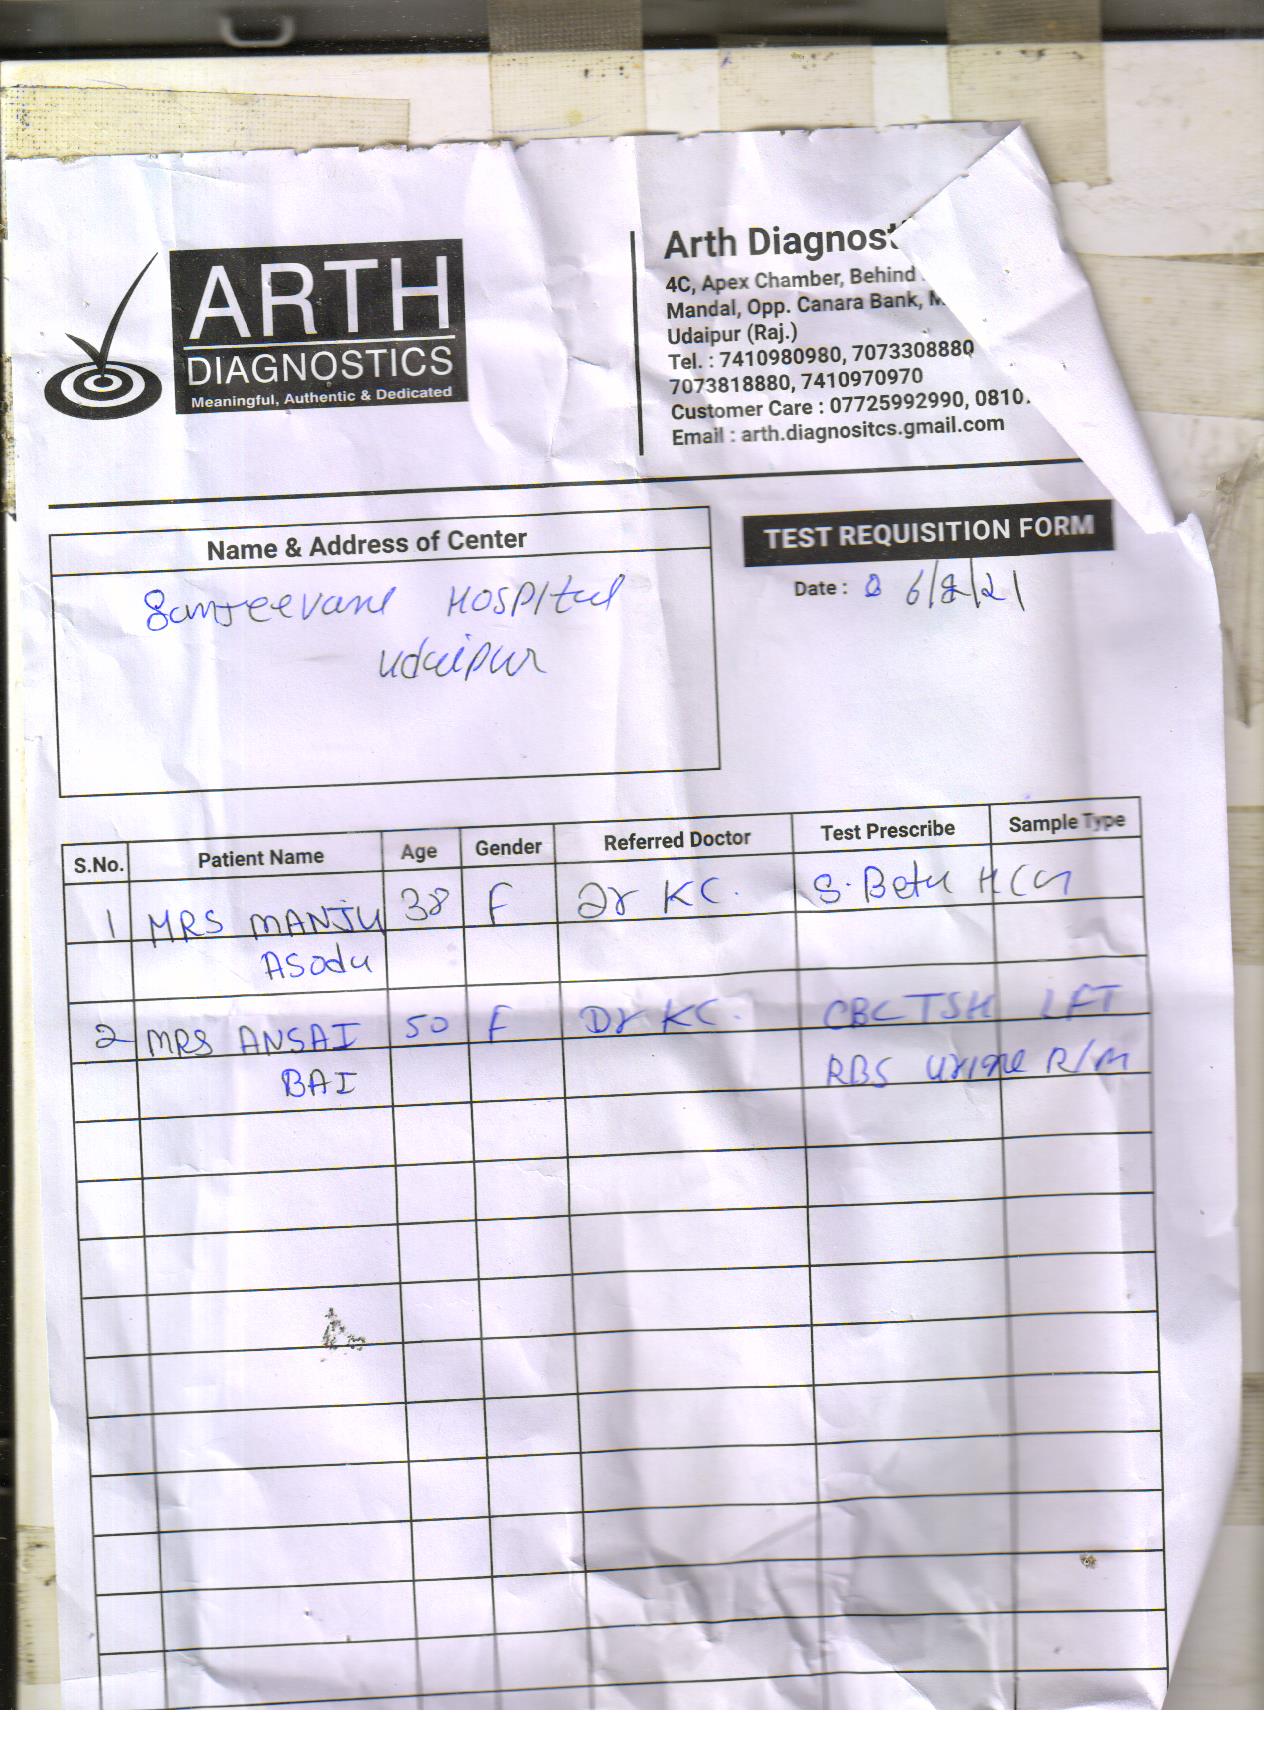 ARTH
DIAGNOSTICS
Meaningful, Authentic & Dedicated
Arth Diagnost
4C, Apex Chamber, Behind
Mandal, Opp. Canara Bank, M
Udaipur (Raj.)
Tel. : 7410980980, 7073308880
7073818880, 7410970970
Customer Care : 07725992990, 0810
Email : arth.diagnositcs.gmail.com
Name & Address of Center
Sanjeevani HOSPItal
udaipur
TEST REQUISITION FORM
Date : 6/8/21
S.No. Patient Name Age Gender Referred Doctor Test Prescribe Sample Type
1 MRS MANJU 38 F Dr KC. S. Beta HCG
ASoda
2 MRS ANSAI 50 F Dr KC. CBC TSH LFT
BAI RBS urine R/M